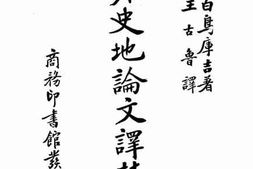 白鳥庫吉著
王古魯譯
史地論文譯
商務印書館發